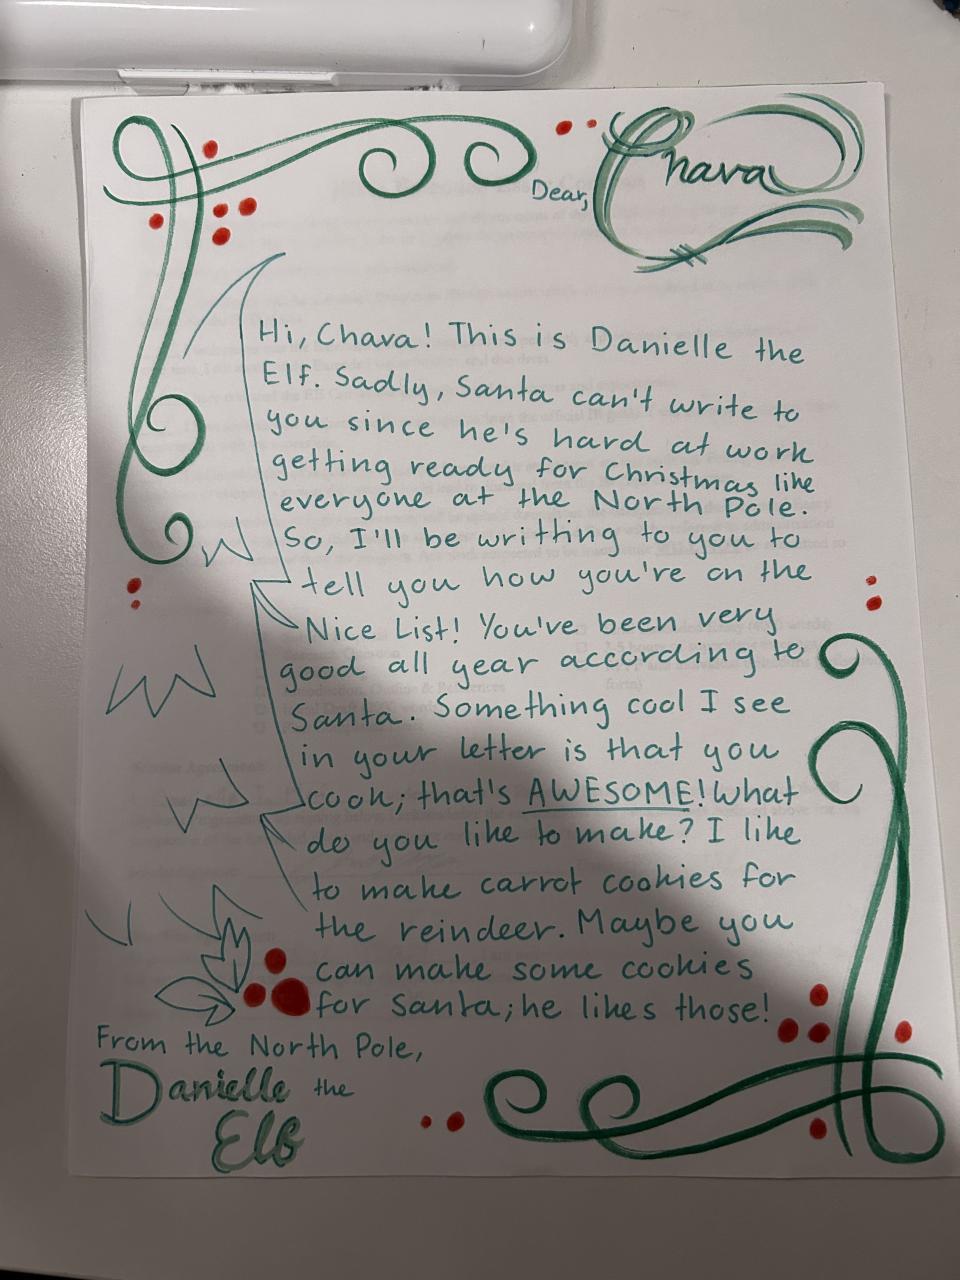 Dear, Chava
Hi, Chava! This is Danielle the
Elf. Sadly, Santa can't write to
you since he's hard at work
getting ready for Christmas like
everyone at the North Pole.
So, I'll be writting to you to
tell you how you're on the
Nice List! You've been very
good all year according to
Santa. Something cool I see
in your letter is that you
cook; that's AWESOME! What
do you like to make? I like
to make carrot cookies for
the reindeer. Maybe you
can make some cookies
for Santa; he likes those!
From the North Pole,
Danielle the
Elf